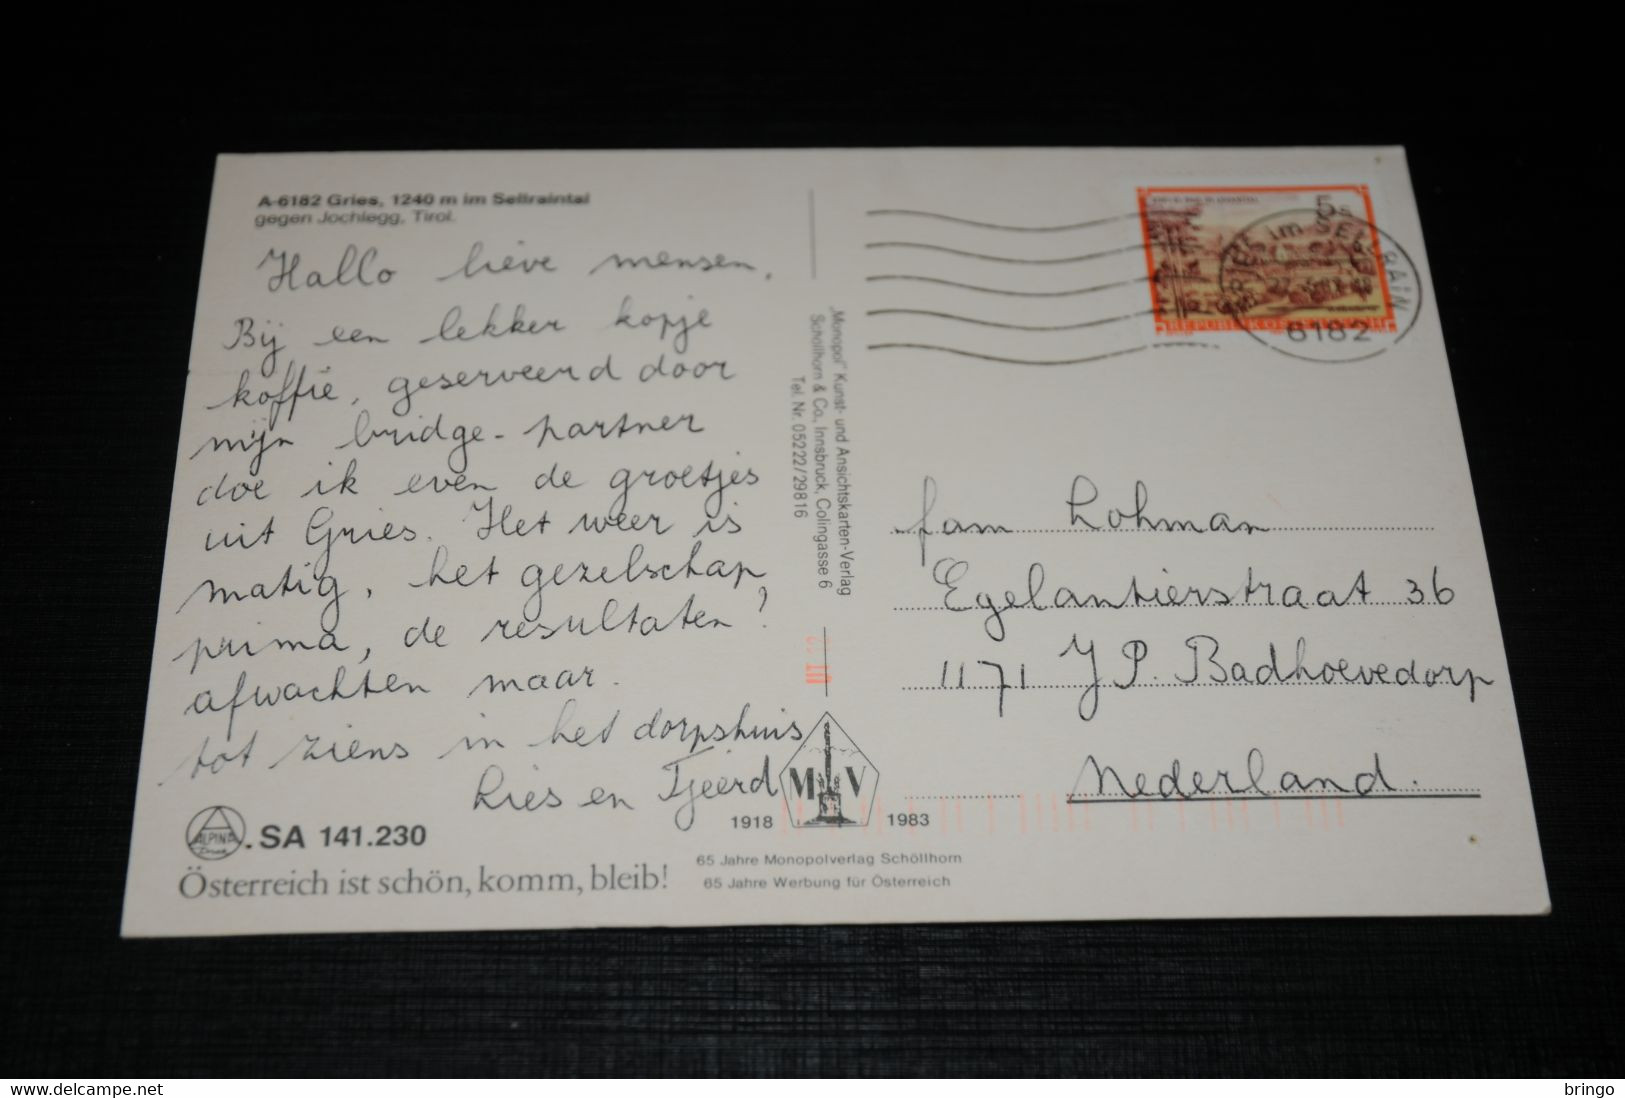 A-6182 Gries, 1240 m im Sellraintal
gegen Jochlegg, Tirol.
Hallo lieve mensen,
Bij een lekker kopje
koffie, geserveerd door
mijn bridge-partner
doe ik even de groetjes
uit Gries. Het weer is
matig, het gezelschap
prima, de resultaten?
afwachten maar.
tot ziens in het dorpshuis
Ries en Tjeerd
ALPINA
. SA 141.230
Österreich ist schön, komm, bleib!
„Monopol" Kunst- und Ansichtskarten-Verlag
Schöllhorn & Co., Innsbruck, Colingasse 6
Tel. Nr. 05222/29816
M V
1918 1983
65 Jahre Monopolverlag Schöllhorn
65 Jahre Werbung für Österreich
5 S
REPUBLIK ÖSTERREICH
im SELLRAIN
6182
fam Lohman
Egelantierstraat 36
1171 JP. Badhoevedorp
Nederland.
delcampe.net
bringo